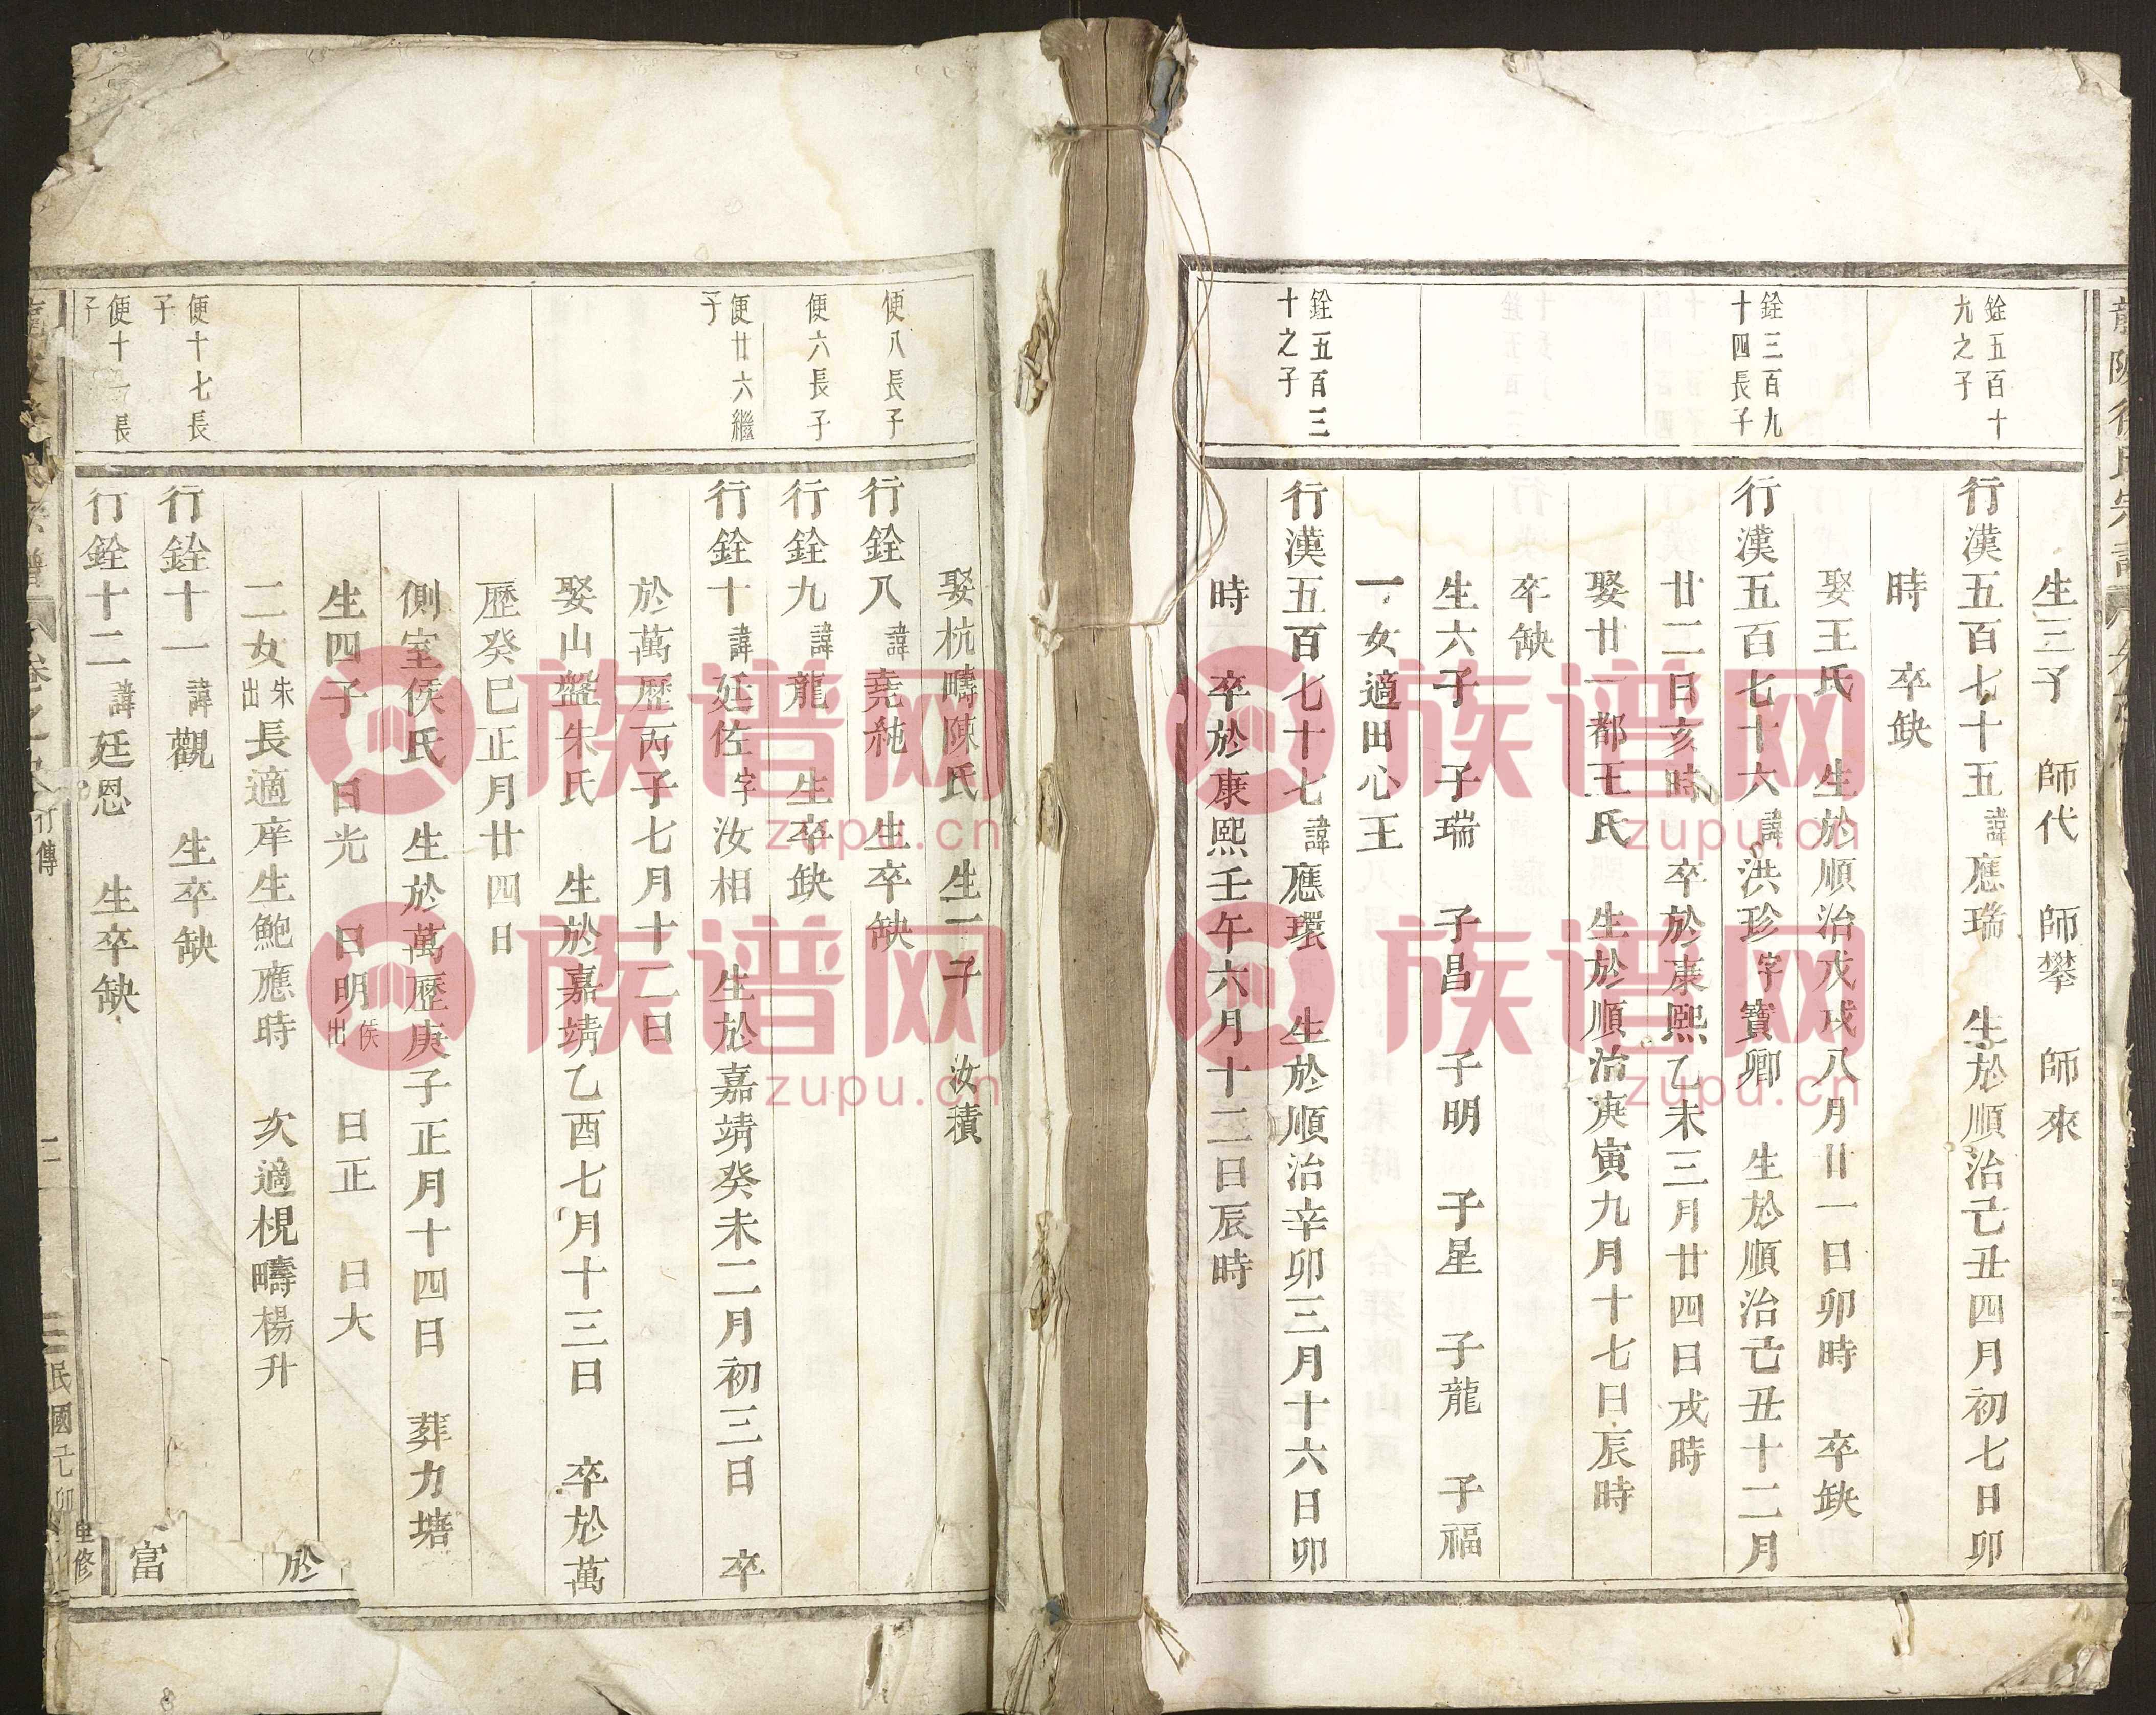 生三子　師代　師攀　師來
銓五百十
九之子
行漢五百七十五諱應瑞　生於順治己丑四月初七日卯
時　卒缺
娶王氏　生於順治戊戌八月廿一日卯時　卒缺
銓三百九
十四長子
行漢五百七十六諱洪珍字寶卿　生於順治己丑十二月
廿二日亥時　卒於康熙乙未三月廿四日戌時
娶廿一都王氏　生於順治庚寅九月十七日辰時
卒缺
生六子　子瑞　子昌　子明　子星　子龍　子福
一女適田心王
銓五百三
十之子
行漢五百七十七諱應環　生於順治辛卯三月十六日卯
時　卒於康熙壬午六月十二日辰時
娶杭疇陳氏　生一子　汝積
便八長子
行銓八諱堯純　生卒缺
便六長子
行銓九諱龍　生卒缺
便廿六繼
子
行銓十諱廷佐字汝相　生於嘉靖癸未二月初三日　卒
於萬歷丙子七月十二日
娶山盤朱氏　生於嘉靖乙酉七月十三日　卒於萬
歷癸巳正月廿四日
側室侯氏　生於萬歷庚子正月十四日　葬力塘
生四子　日光　日明侯出　日正　日大
二女朱出長適庠生鮑應時　次適梘疇楊升
於
便十七長
子
行銓十一諱觀　生卒缺
富
便十一長
子
行銓十二諱廷恩　生卒缺
民國己卯重修
族谱网
zupu.cn
族谱网
zupu.cn
族谱网
zupu.cn
族谱网
zupu.cn